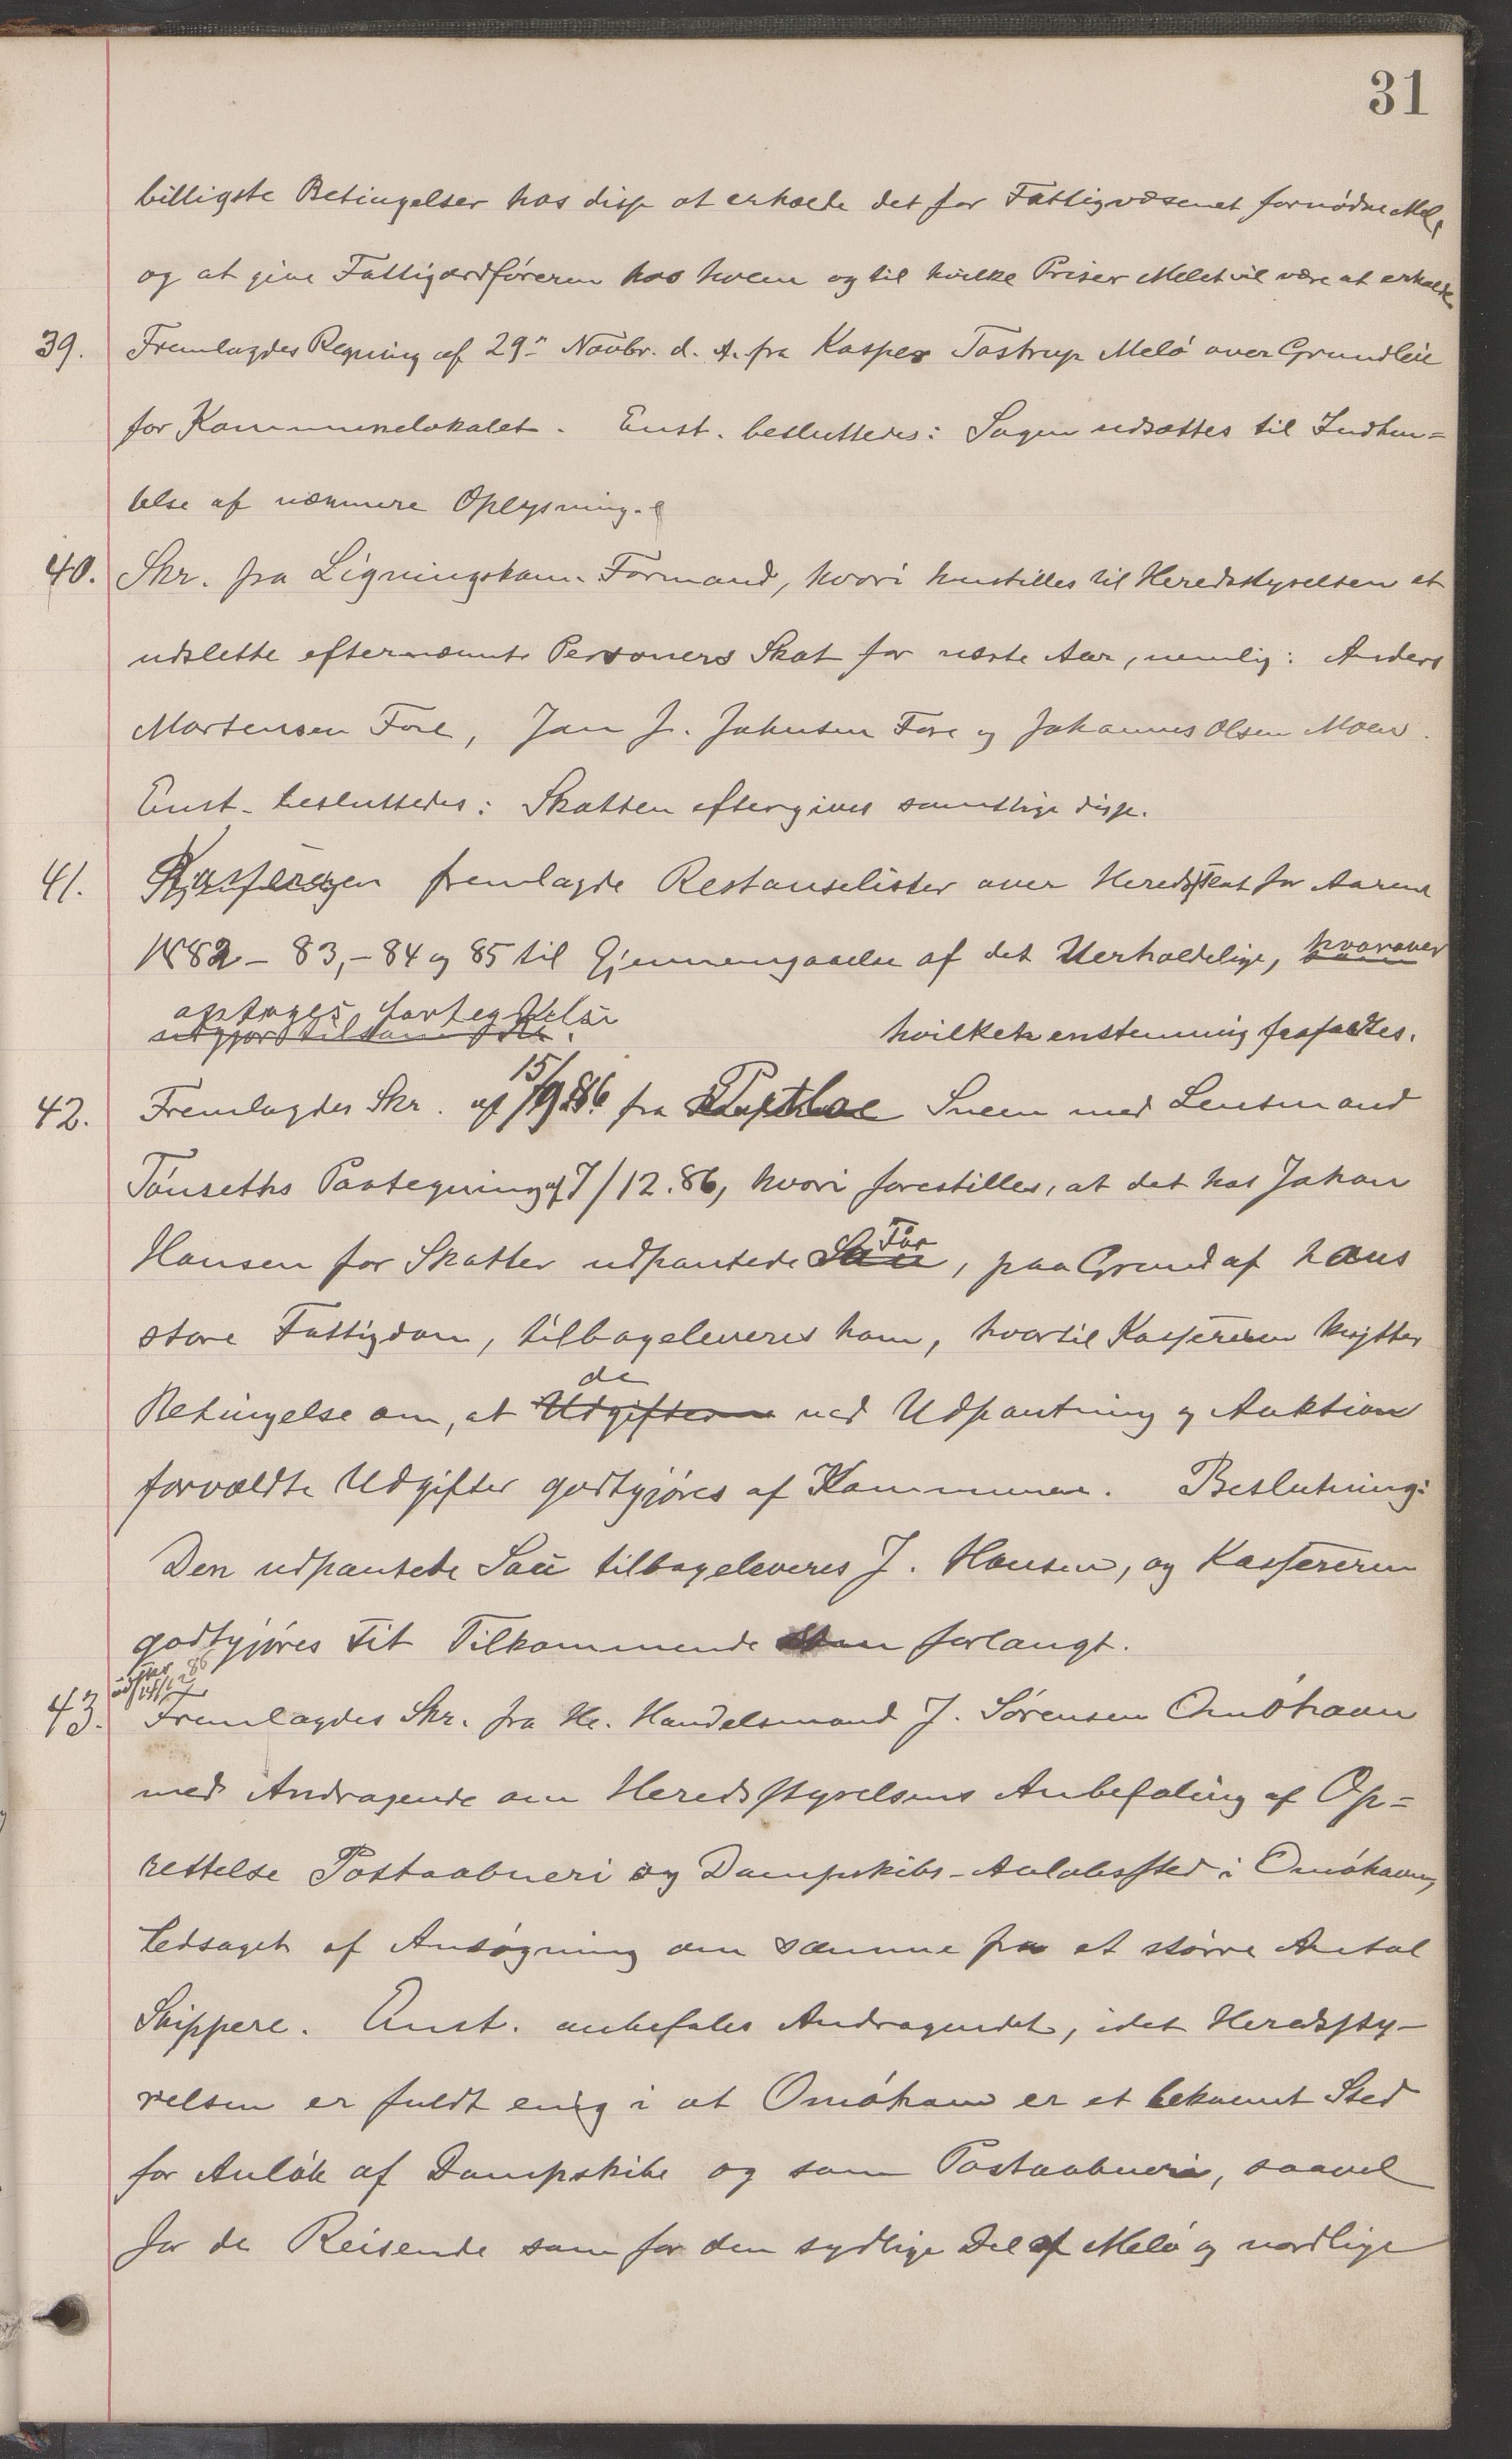 31
billigste Betingelser hos disp at erholde det for Fattigvæsenet fornødne Mel,
og at give Fattigordføreren hos hvem og til hvilke Priser Melet vil være at erholde.
39. Fremlagdes Regning af 29de Novbr. d. A. fra Kasper Tostrup Melø over Grundleie
for Kommunelokalet. Enst. besluttedes: Sagen udsættes til Indhen=
telse af nærmere Oplysning.
40. Skr. fra Ligningskom. Formand, hvori henstilles til Heredsstyrelsen at
udslette efternævnte Personers Skat for næste Aar, nemlig: Anders
Mortensen Fore, Jan J. Johnsen Fore og Johannes Olsen Moen.
Enst. besluttedes: Skatten eftergives samtlige disse.
41. Kassereren fremlagde Restanselister over Heredsskat for Aarene
1882 - 83, - 84 og 85 til Gjennemgaaelse af det Uerholdelige, hvorover
optoges fortegnelse
udgjør tilsam Kr. hvilket enstemmig frafaldtes.
42. Fremlagdes Skr. af 15/9.86 fra Snem med Lensmand
Tønseths Paategning af 7/12.86, hvori forestilles, at det hos Johan
Hansen for Skatter udpantede Sau Får, paa Grund af hans
store Fattigdom, tilbageleveres ham, hvortil Kassereren knytter
Betingelse om, at Udgifterne de ved Udpantning og Auktion
forvoldte Udgifter godtgjøres af Kommunen. Beslutning:
Den udpantede Sau tilbageleveres J. Hansen, og Kassereren
godtgjøres sit Tilkommende som forlangt.
43. Fremlagdes Skr. fra Hr. Handelsmand J. Sørensen Omøhavn
med Andragende om Heredsstyrelsens Anbefaling af Op=
rettelse Postaabneri og Dampskibs-Anløbssted i Omøhavn,
ledsaget af Ansøgning om samme fra et større Antal
Skippere. Enst. anbefales Andragendet, idet Heredssty-
relsen er fuldt enig i at Omøhavn er et bekvemt Sted
for Anløb af Dampskibe og som Postaabneri, saavel
for de Reisende som for den sydlige Del af Melø og nordlige